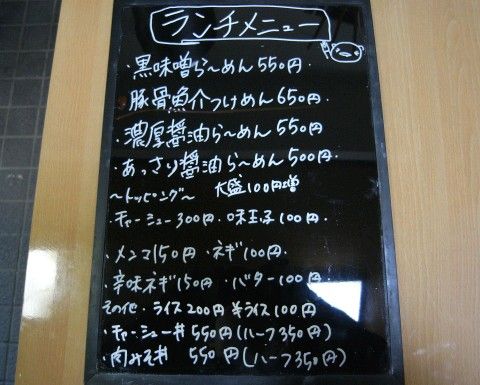 ランチメニュー
・黒味噌ら〜めん 550円
豚骨魚介つけめん 650円
・濃厚醤油ら〜めん 550円
・あっさり醤油ら〜めん 500円
〜トッピング〜 大盛100円増
・チャーシュー300円・味玉子100円
・メンマ150円 ・ネギ100円
・辛味ネギ150円 ・バター100円
その他・ライス200円 半ライス100円
・チャーシュー丼 550円(ハーフ350円)
・肉みそ丼 550円(ハーフ350円)